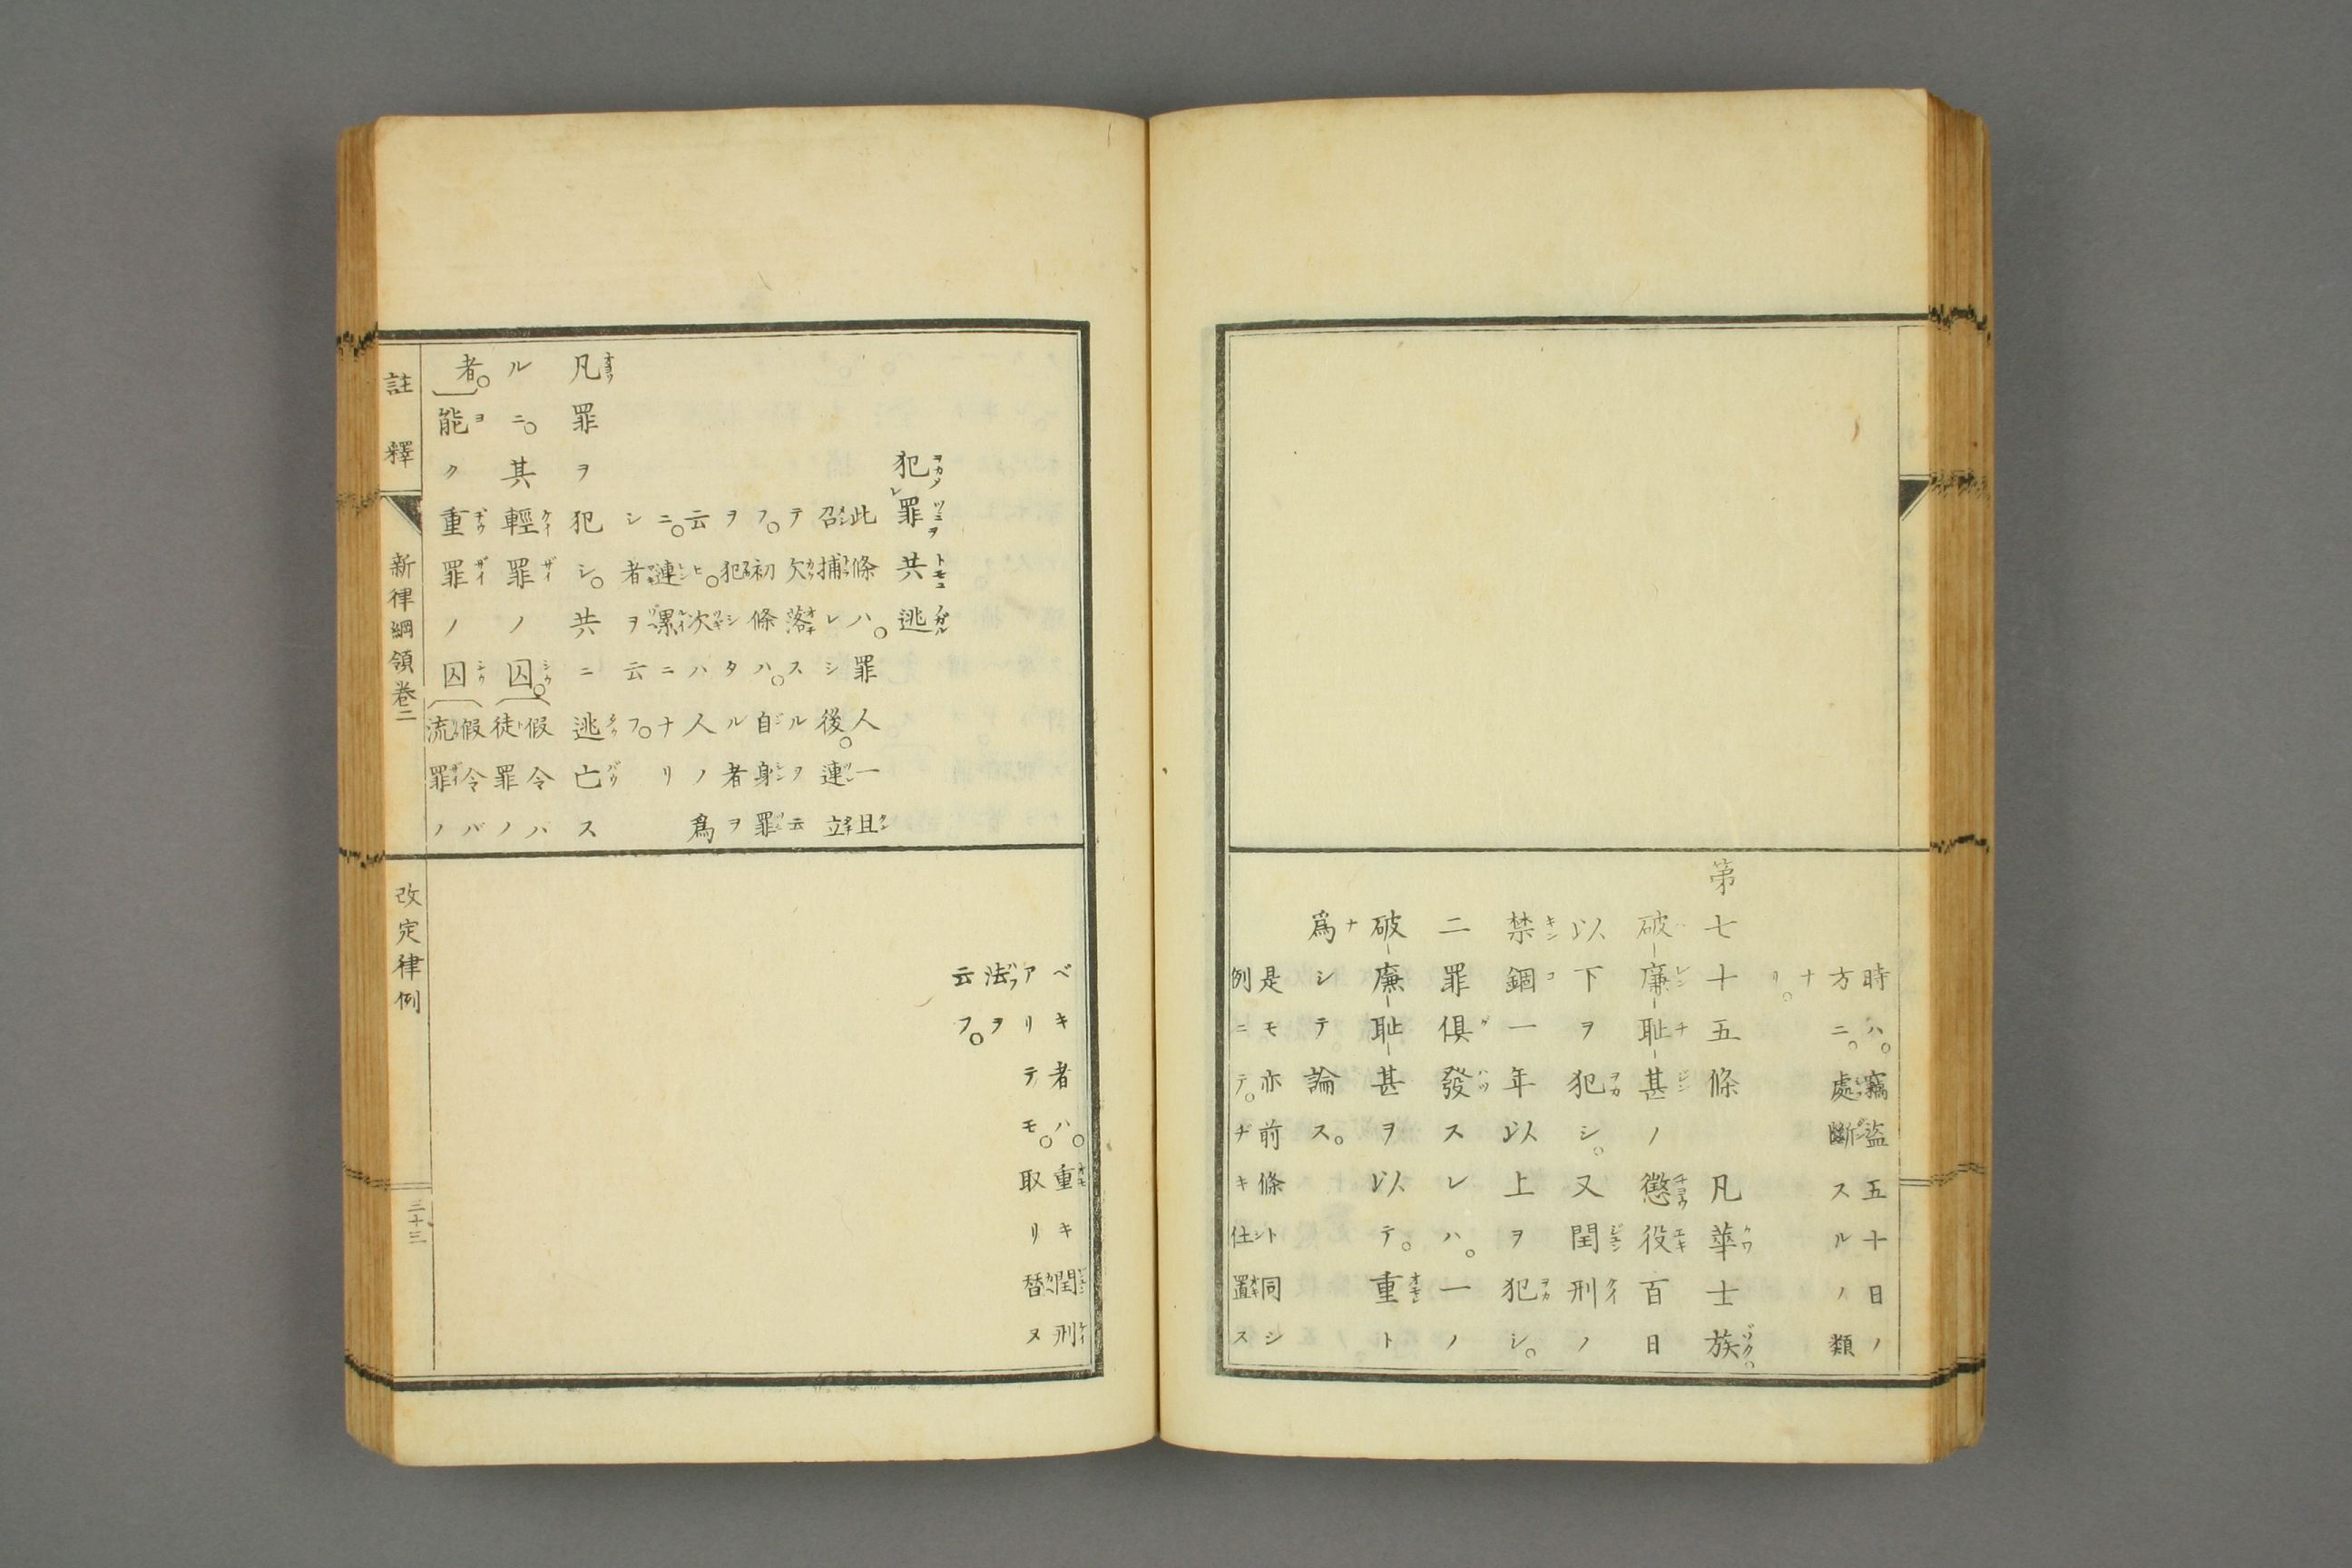 時ハ。竊盜五十日ノ
方ニ。處斷スルノ類
ナ
リ。
第七十五條　凡華士族。
破廉耻甚ノ懲役百日
以下ヲ犯シ。又閏刑ノ
禁錮一年以上ヲ犯シ。
二罪俱發スレハ。一ノ
破廉耻甚ヲ以テ。重ト
爲シテ論ス。
是モ亦前條ト同シ
例ニテ。ヂキ仕置ス
犯罪共逃
此條ハ。罪人一且
召捕レシ後。連立
テ欠落スルヲ云
フ。初條ハ。自身罪
ヲ犯シタル者ヲ
云ヒ。次ハ人ノ爲
ニ。連累ニナリ
シ者ヲ云フ。
凡罪ヲ犯シ。共ニ逃亡ス
ルニ。其輕罪ノ囚。假令バ徒罪ノ
者。能ク重罪ノ囚假令バ流罪ノ
ベキ者ハ。重キ閏刑
アリテモ。取リ替ヌ
法ヲ
云フ。
註釋　新律綱領卷二　改定律例　二十三